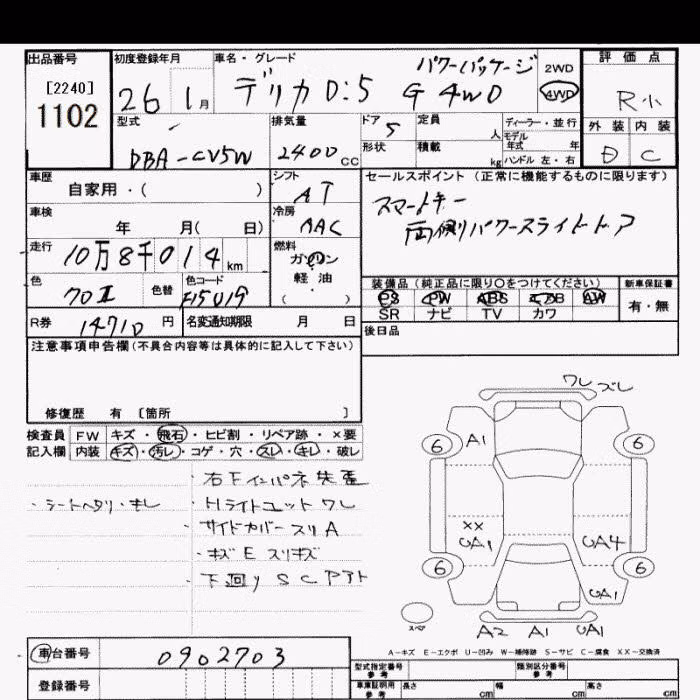 出品番号 初度登録年月 車名・グレード 評価点
[2240]
1102
26 1月 デリカ D:5 G 4WD パワーパッケージ 2WD 4WD R小
型式 排気量 ドア 定員 人 ディーラー・並行 外装 内装
DBA-CV5W 2400cc 5 形状 積載 kg モデル年式 年 ハンドル 左・右 D C
車歴 自家用・( ) シフト AT セールスポイント(正常に機能するものに限ります)
車検 年 月( 日) 冷房 AAC スマートキー
両側パワースライドドア
走行 10万8千014km 燃料 ガソリン 軽油 ( )
色 クロⅡ 色替 色コード 装備品(純正品に限り〇をつけてください) 新車保証書
PS PW ABS エアB AW 有・無
SR ナビ TV カワ
R券 14710円 名変通知期限 月 日 後日品
注意事項申告欄(不具合内容等は具体的に記入して下さい)
修復歴 有 [箇所 ]
検査員記入欄 FW キズ・飛石・ヒビ割・リペア跡・×要
内装 キズ・汚レ・コゲ・穴・スレ・キレ・破レ
・シートヘタリ・キレ
・右Fインパネ先歪
・Hライトユットワレ
・サイドカバースリA
・キズE スリキズ
・下回りSCPアト
ワレ ズレ
6 A1 6
XX
UA1 UA4
6 6
UA1
スペア A2 A1 UA1
A-キズ E-エクボ U-凹み W-補修跡 S-サビ C-腐食 XX-交換済
車台番号 0902703
登録番号
型式指定番号 参考 類別区分番号 参考
車庫証明用 参考 長さ cm 幅 cm 高さ cm